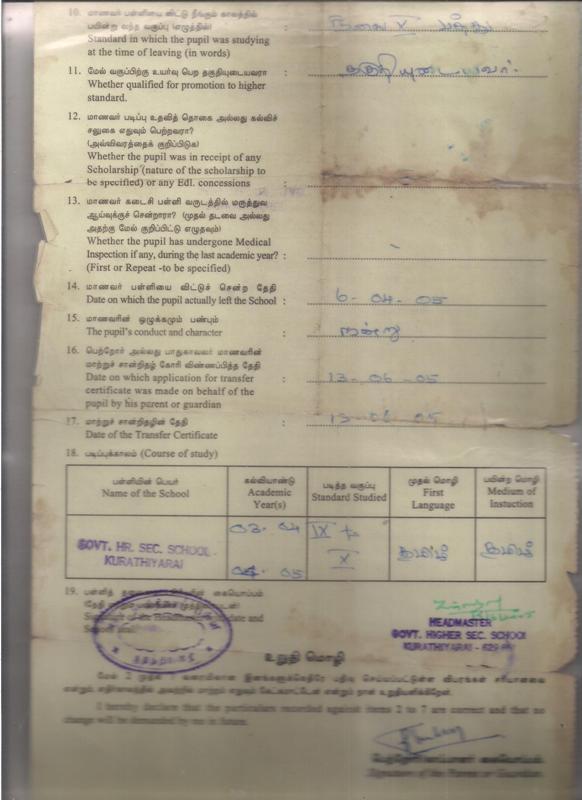 10. மாணவர் பள்ளியை விட்டு நீங்கும் காலத்தில்
பயின்று வந்த வகுப்பு (எழுத்தில்)
Standard in which the pupil was studying
at the time of leaving (in words)
X பத்து
11. மேல் வகுப்பிற்கு உயர்வு பெற தகுதியுடையவரா :
Whether qualified for promotion to higher
standard.
தகுதியுடையவர்.
12. மாணவர் படிப்பு உதவித் தொகை அல்லது கல்விச்
சலுகை எதுவும் பெற்றவரா?
(அவ்விவரத்தைக் குறிப்பிடுக)
Whether the pupil was in receipt of any
Scholarship (nature of the scholarship to
be specified) or any Edl. concessions :
13. மாணவர் கடைசி பள்ளி வருடத்தில் மருத்துவ
ஆய்வுக்குச் சென்றாரா? (முதல் தடவை அல்லது
அதற்கு மேல் குறிப்பிட்டு எழுதவும்)
Whether the pupil has undergone Medical
Inspection if any, during the last academic year? :
(First or Repeat -to be specified)
14. மாணவர் பள்ளியை விட்டுச் சென்ற தேதி
Date on which the pupil actually left the School : 6-04-05
15. மாணவரின் ஒழுக்கமும் பண்பும்
The pupil's conduct and character : நன்று
16. பெற்றோர் அல்லது பாதுகாவலர் மாணவரின்
மாற்றுச் சான்றிதழ் கோரி விண்ணப்பித்த தேதி
Date on which application for transfer : 13-06-05
certificate was made on behalf of the
pupil by his parent or guardian
17. மாற்றுச் சான்றிதழின் தேதி : 13-06-05
Date of the Transfer Certificate
18. படிப்புக்காலம் (Course of study)
பள்ளியின் பெயர்
Name of the School
கல்வியாண்டு
Academic
Year(s)
படித்த வகுப்பு
Standard Studied
முதல் மொழி
First
Language
பயின்ற மொழி
Medium of
Instuction
GOVT. HR. SEC. SCHOOL.
KURATHIYARAI
03-04
04-05
IX +
X
தமிழ்
தமிழ்
19. பள்ளித் கையொப்பம்
HEADMASTER
GOVT. HIGHER SEC. SCHOOL
KURATHIYARAI - 629
உறுதி மொழி
மேல் 2 முதல் 7 வரையிலான இனங்களுக்கெதிரே பதிவு செய்யப்பட்டுள்ள விபரங்கள் சரியானவை
என்றும், எதிர்காலத்தில் அவற்றில் மாற்றம் எதுவும் கேட்கமாட்டேன் என்றும் நான் உறுதியளிக்கிறேன்.
I hereby declare that the particulars recorded against items 2 to 7 are correct and that no
change will be demanded by me in future.
கையொப்பம்
Signature of the Parent or Guardian.